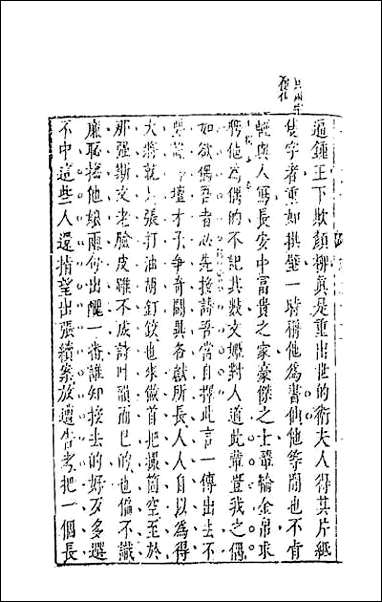 逼鍾王下欺顏柳真是重出世的衛夫人得其片紙
隻字者重如拱璧一時稱他為書仙他等閒也不肯
輕與人寫長安中富貴之家豪傑之士輦輸金帛求
聘他為偶的不記其數文姬對人道此輩豈我之偶
如欲偶吾者必先投詩吾當自擇此言一傳出去不
要說吟壇才子爭奇鬪異各獻所長人人自以為得
大將就是張打油胡釘鉸也來做首把撮箇空至於
那强斯文老臉皮雖不成詩叶韻而已的也偏不識
廉恥捏他娘兩句出醜一番誰知投去的好歹多選
不中這些人還指望出張續案放遭告考把一個長